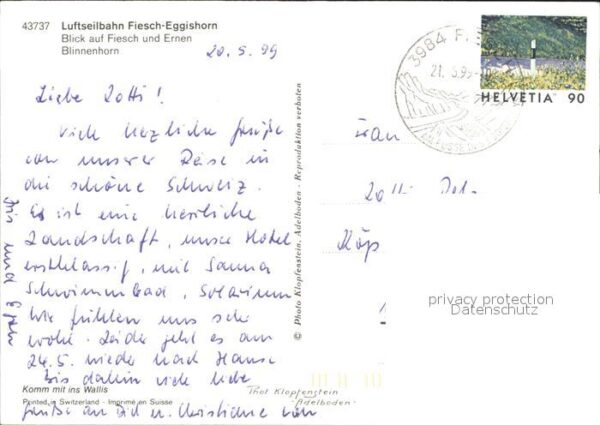 43737 Luftseilbahn Fiesch-Eggishorn
Blick auf Fiesch und Ernen
Blinnenhorn
20.5.99
Liebe Lotti!
Viele herzliche Grüße
von unserer Reise in
die schöne Schweiz.
Es ist eine herrliche
Landschaft, unser Hotel
erstklassig, mit Sauna
Schwimmbad, Solarium
Wir fühlen uns sehr
wohl. Leider geht es am
24.5. wieder nach Hause
Bis dahin viele liebe
Grüße an Dich u. Christiane von
Iris und
Komm mit ins Wallis
Printed in Switzerland - Imprimé en Suisse
© Photo Klopfenstein, Adelboden - Reproduktion verboten
Phot Klopfenstein
-Adelboden-
3984
21.5.99
HELVETIA 90
Frau
Lotti
privacy protection
Datenschutz